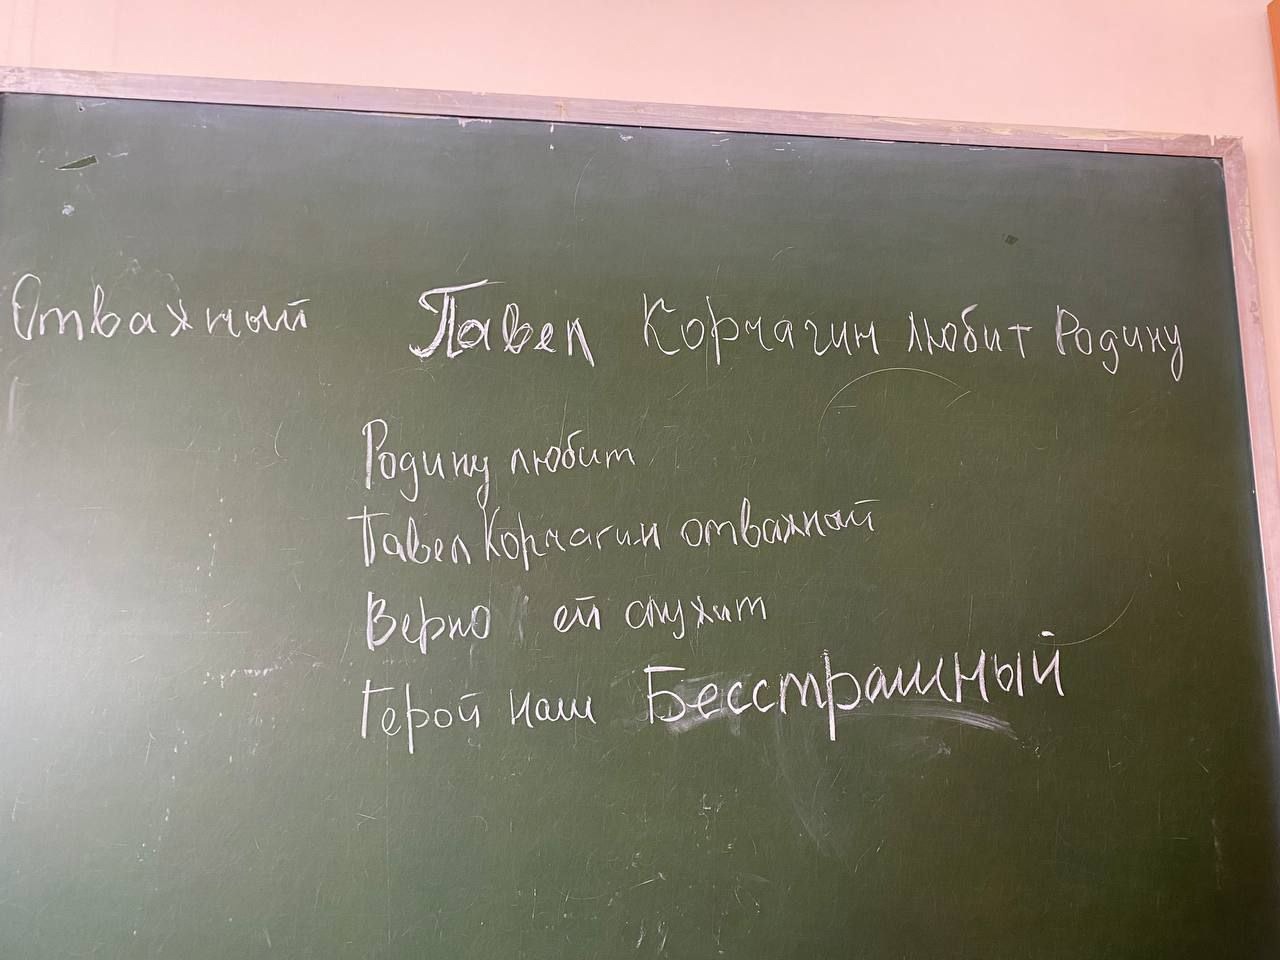 Отважный Павел Корчагин любит Родину
Родину любит
Павел Корчагин отважный
Верно ей служит
Герой наш Бесстрашный